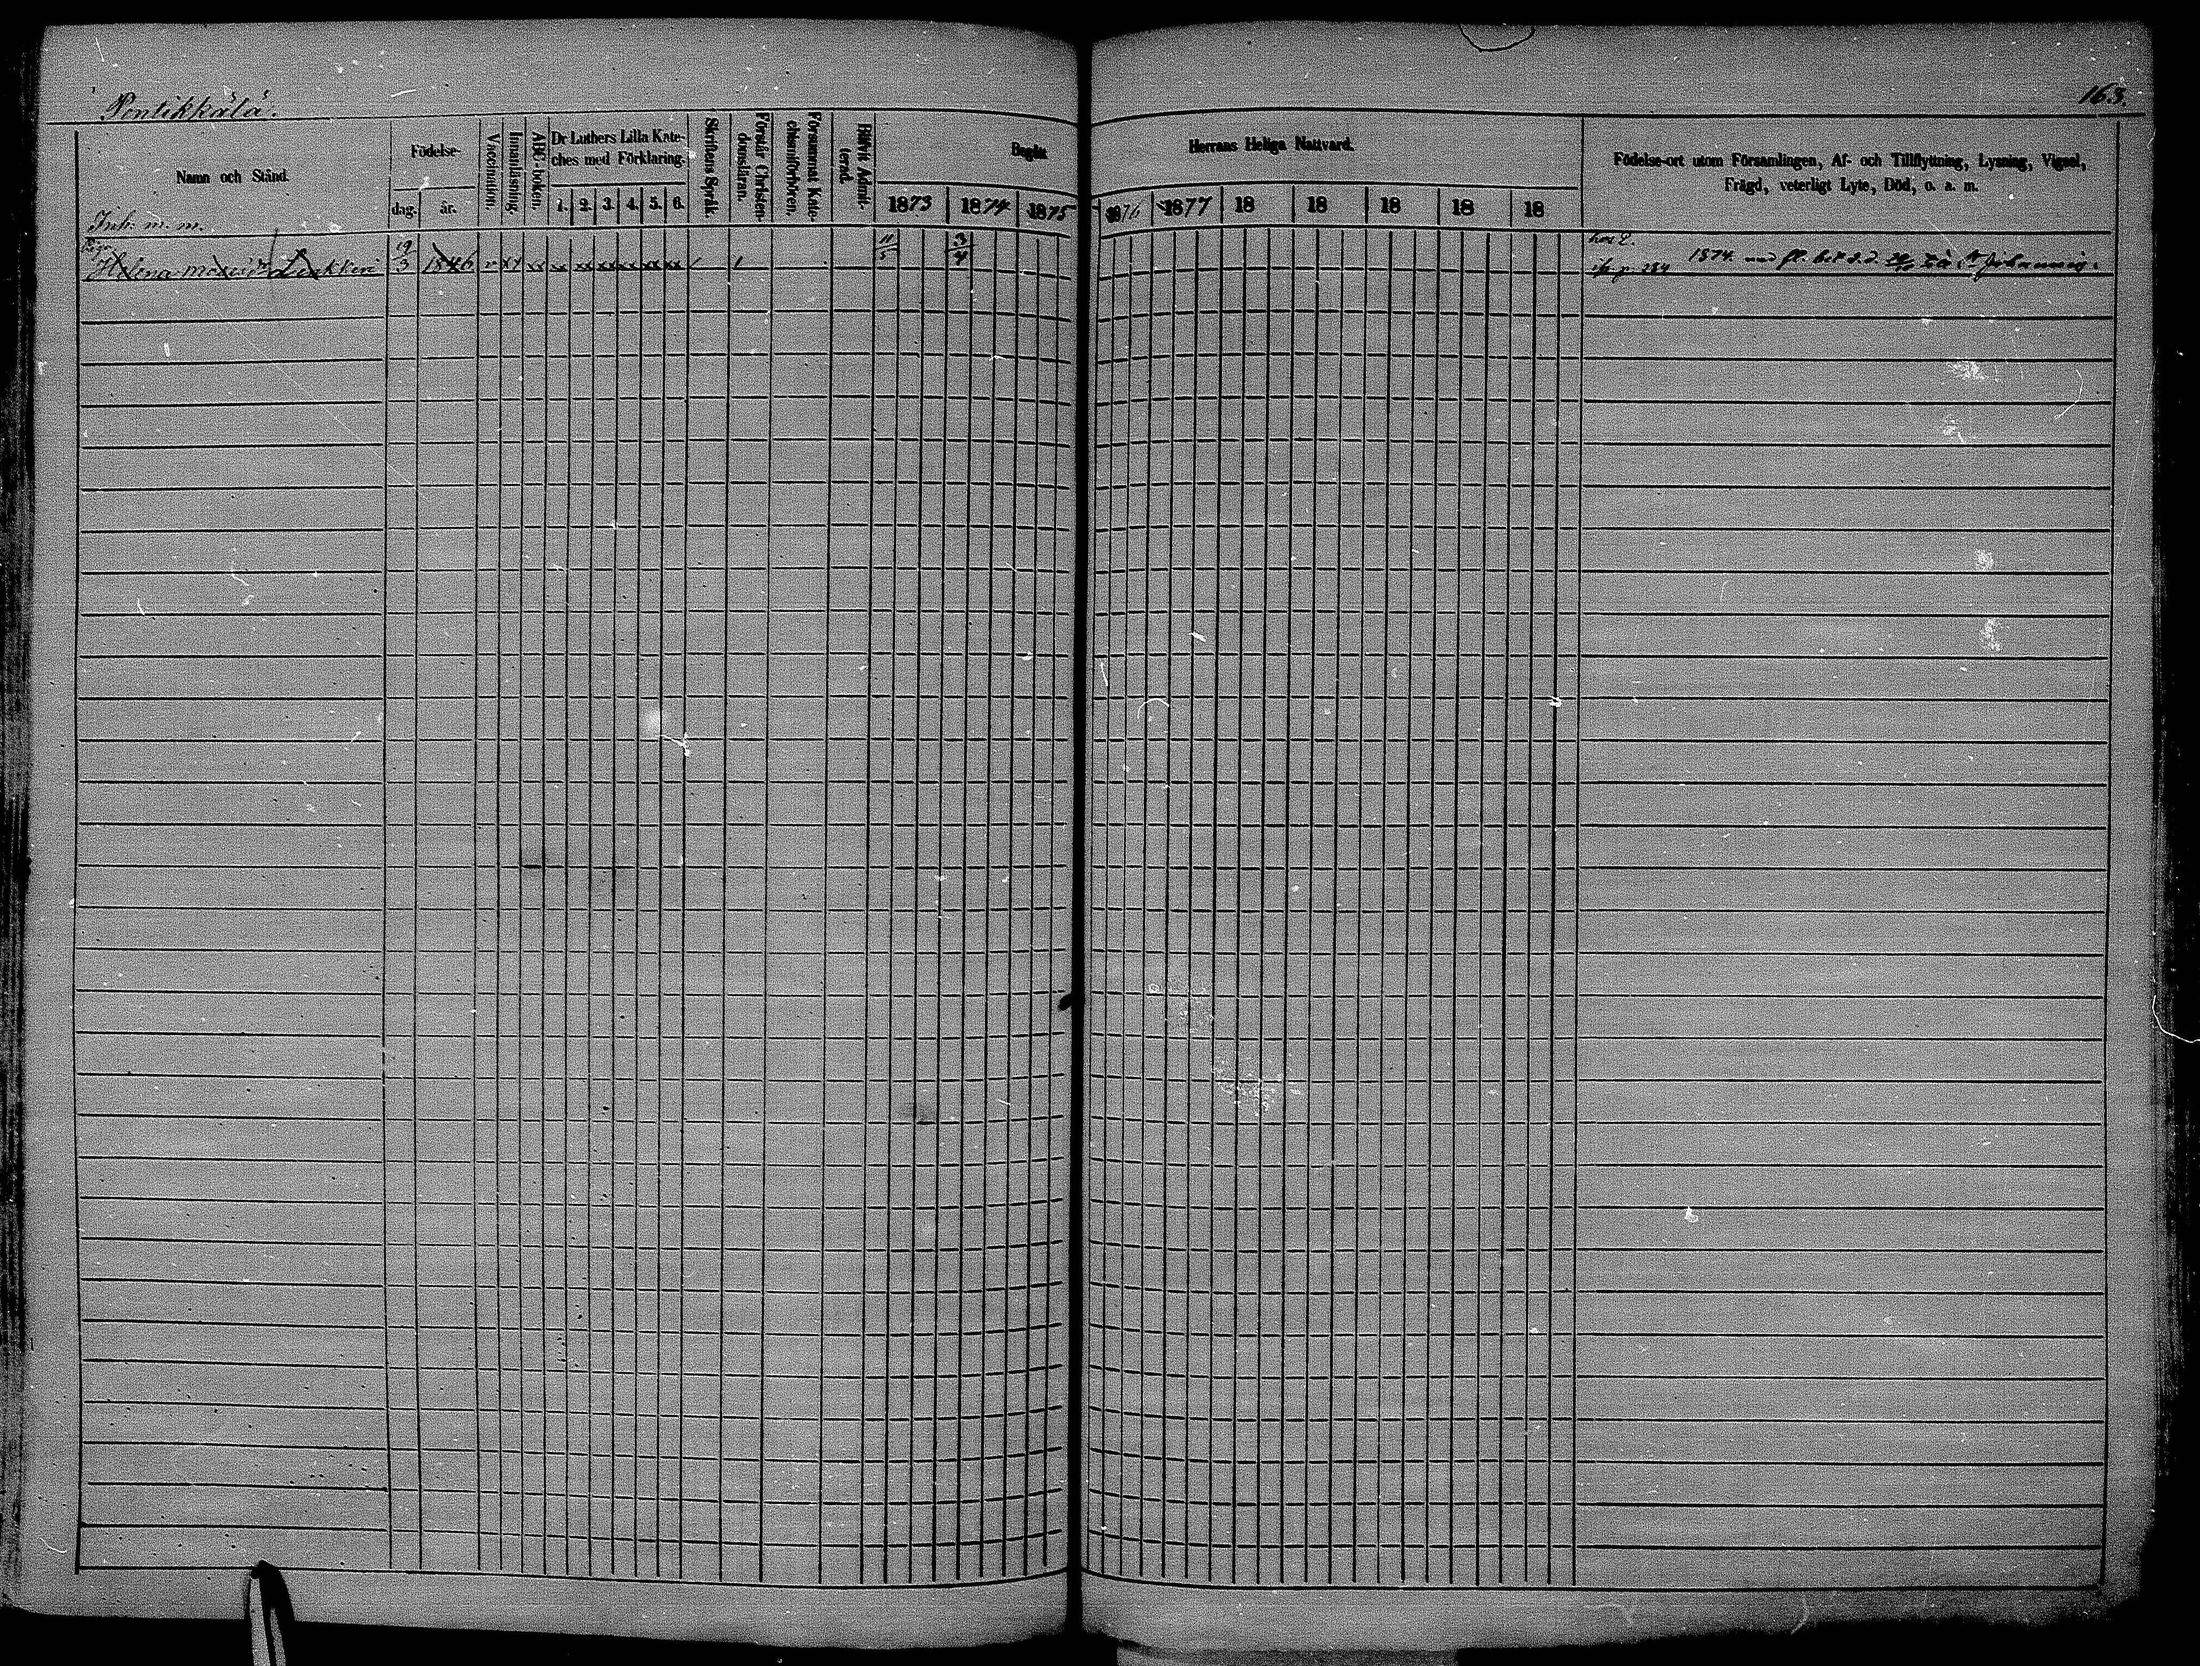 Pentikkälä.
163.
Namn och Stånd.
Födelse-
dag.
år.
Vaccination.
Innanläsning.
ABC-boken.
Dr Luthers Lilla Kate-
ches med Förklaring.
1. 2. 3. 4. 5. 6.
Skriftens Språk.
Förstår Christen-
domsläran.
Försummat Kate-
chismiförhören.
Blifvit Admit-
terad.
Begått
1873 1874 1875
Herrans Heliga Nattvard.
1876 1877 18 18 18 18 18
Födelse-ort utom Församlingen, Af- och Tillflyttning, Lysning, Vigsel,
Frägd, veterligt Lyte, Död, o. a. m.
Inh. m. m.
Helena 19/3 1846 v xx xx xx xx xx xx xx xx 1 1 11/5 3/4
1874